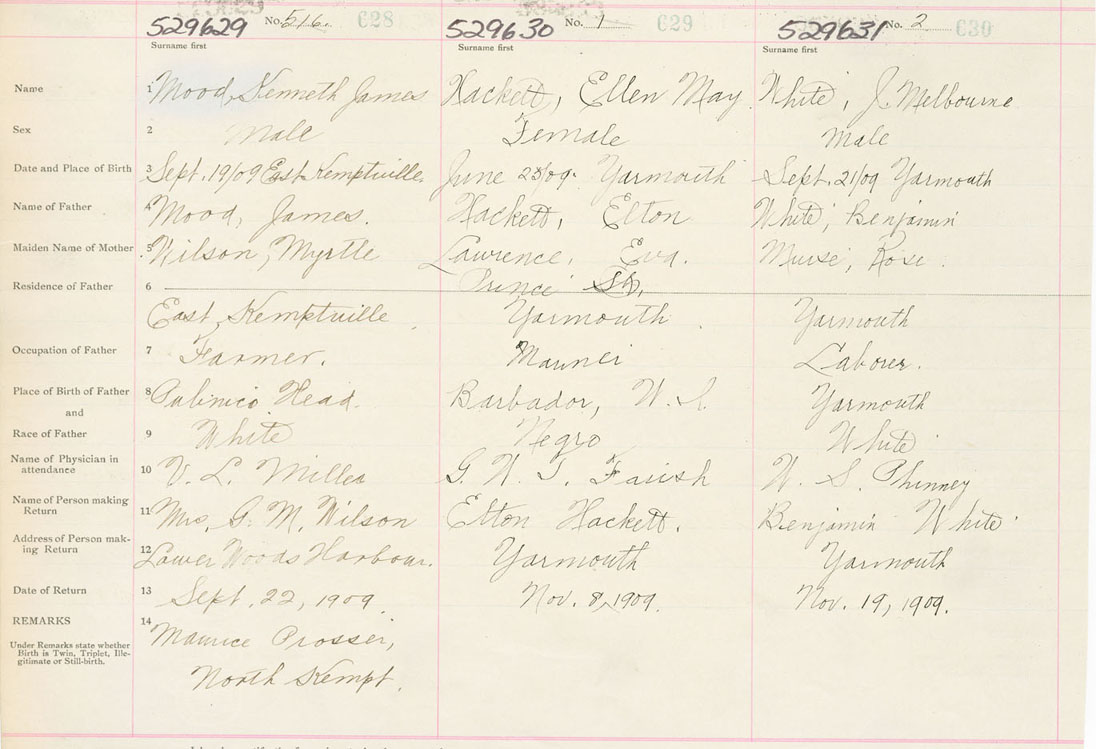 529629 No. 516. 628 529630 No. 1 629 529631 No. 2 630
Surname first Surname first Surname first
Name 1 Mood, Kenneth James Hackett, Ellen May White, J. Melbourne
Sex 2 Male Female Male
Date and Place of Birth 3 Sept. 19/09 East Kemptville June 25/09. Yarmouth Sept. 21/09 Yarmouth
Name of Father 4 Mood, James. Hackett, Elton White, Benjamin
Maiden Name of Mother 5 Wilson, Myrtle Lawrence, Eva. Muise, Rose.
Residence of Father 6 Prince St,
East Kemptville. Yarmouth. Yarmouth
Occupation of Father 7 Farmer. Laborer.
Place of Birth of Father 8 Pubnico Head. Barbador, W. I. Yarmouth
and
Race of Father 9 White Negro White
Name of Physician in
attendance 10 V. L. Miller G. W. T. Farish W. S. Phinney
Name of Person making
Return 11 Mrs. G. M. Wilson Elton Hackett. Benjamin White.
Address of Person mak-
ing Return 12 Lower Woods Harbour. Yarmouth Yarmouth
Date of Return 13 Sept. 22, 1909. Nov. 8, 1909. Nov. 19, 1909.
REMARKS 14
Maurice Prosser,
Under Remarks state whether
Birth is Twin, Triplet, Ille-
gitimate or Still-birth.
North Kempt.